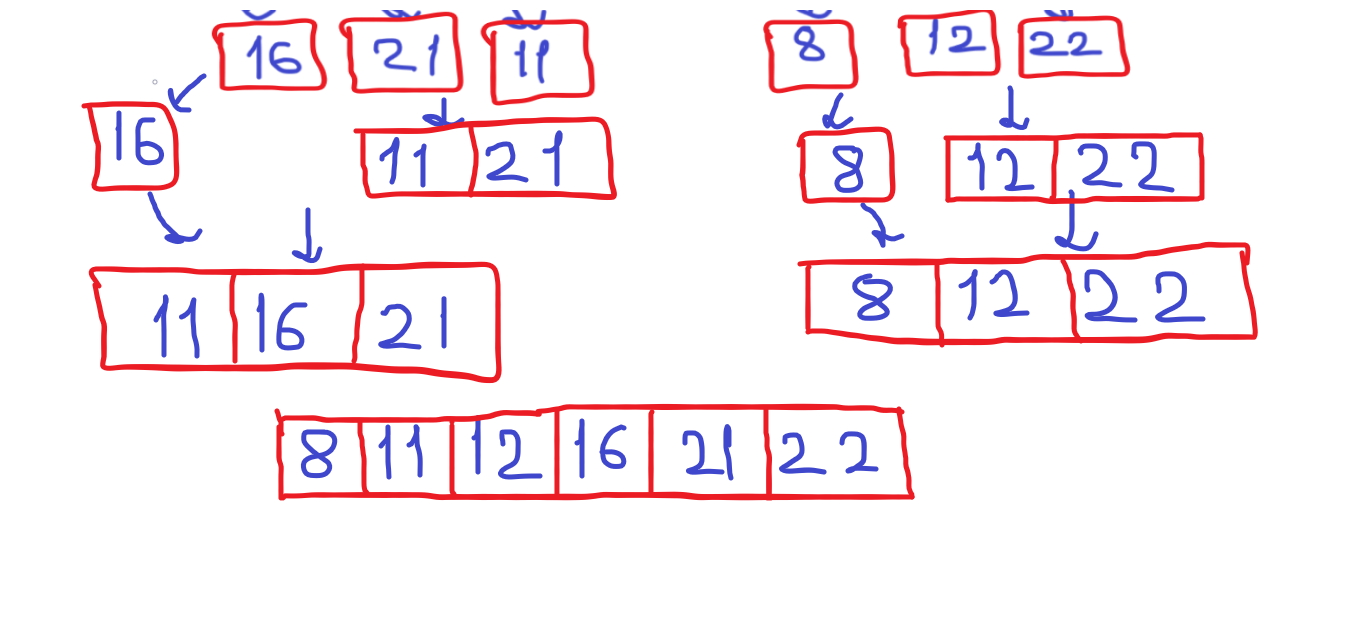 16 21 11 8 12 22
16 11 21 8 12 22
11 16 21 8 12 22
8 11 12 16 21 22